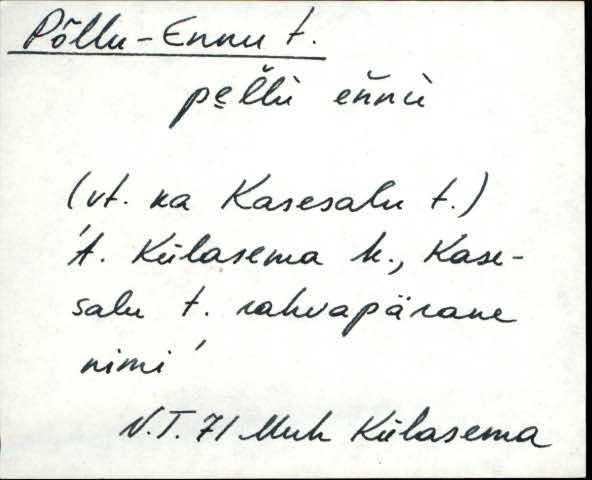 Põllu-Ennu t.
pe̮l̆l̆ù ĕn̆nù
(vt. ka Kasesalu t.)
't. Külasema k., Kase-
salu t. rahvapärane
nimi'
V.T. 71 Muh Külasema